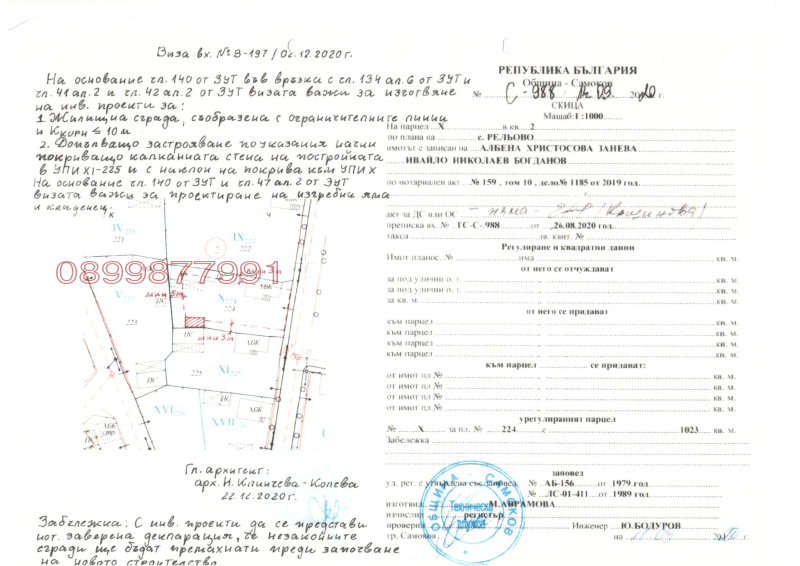 Виза вх. № В-197 / 02.12.2020 г.
На основание чл. 140 от ЗУТ във връзка с чл. 134 ал. 6 от ЗУТ и
чл. 41 ал. 2 и чл. 42 ал. 2 от ЗУТ визата важи за изготвяне
на инв. проекти за:
1. Жилищна сграда, съобразена с ограничителните линии
и Ккорн ≤ 10 м
2. Допълващо застрояване по указания начин
покриващо калканната стена на постройката
в УПИ XI-225 и с наклон на покрива към УПИ X
На основание чл. 140 от ЗУТ и чл. 47 ал. 2 от ЗУТ
визата важи за проектиране на изгребна яма
и кладенец.
IV 221
221
IX 222
222
2
0899877991
мин 3м
мин 5м
V
223
ПС
X 224
224
МЖ
ПС
мин 3м
МЖ
225
XI 225
ПС
XVI 226
XVII
МЖ
ПС
МЖ
Гл. архитект:
арх. Н. Клинчева - Колева
22.12.2020 г.
Забележка: С инв. проекти да се представи
нот. заверена декларация, че незаконните
сгради ще бъдат премахнати преди започване
на новото строителство.
РЕПУБЛИКА БЪЛГАРИЯ
Община - Самоков
№ С-988 / 14.09. 2020 г.
СКИЦА
Мащаб:1 :1000
На парцел X в кв. 2
по плана на с. РЕЛЬОВО
имотът е записан на АЛБЕНА ХРИСТОСОВА ЗАНЕВА
ИВАЙЛО НИКОЛАЕВ БОГДАНОВ
по нотариален акт № 159 , том 10 , дело№ 1185 от 2019 год.
акт за ДС или ОС - няма -
преписка вх. № ТС-С- 988 от 26.08.2020 год.
такса лв. квит. №
Регулиране и квадратни данни
Имот планос. № има кв. м.
от него се отчуждават
за под улични о. т. кв. м.
за под улични о. т. кв. м.
за кв. м. кв. м.
от него се придават
към парцел кв. м.
към парцел кв. м.
към парцел кв. м.
към парцел кв. м.
към парцел се придават:
от имот пл № кв. м.
от имот пл № кв. м.
от имот пл № кв. м.
от имот пл № кв. м.
урегулираният парцел
№ X за пл. № 224 е 1023 кв. м.
Забележка
заповед
уд. рег. е утвърдена със заповед № АБ-156 от 1979 год.
№ ЛС-01-411 от 1989 год.
изготвил М.АВРАМОВА
изчислил регистър
проверил Инженер Ю.БОДУРОВ
гр. Самоков на
ОБЩИНА - САМОКОВ
Техническа
служба